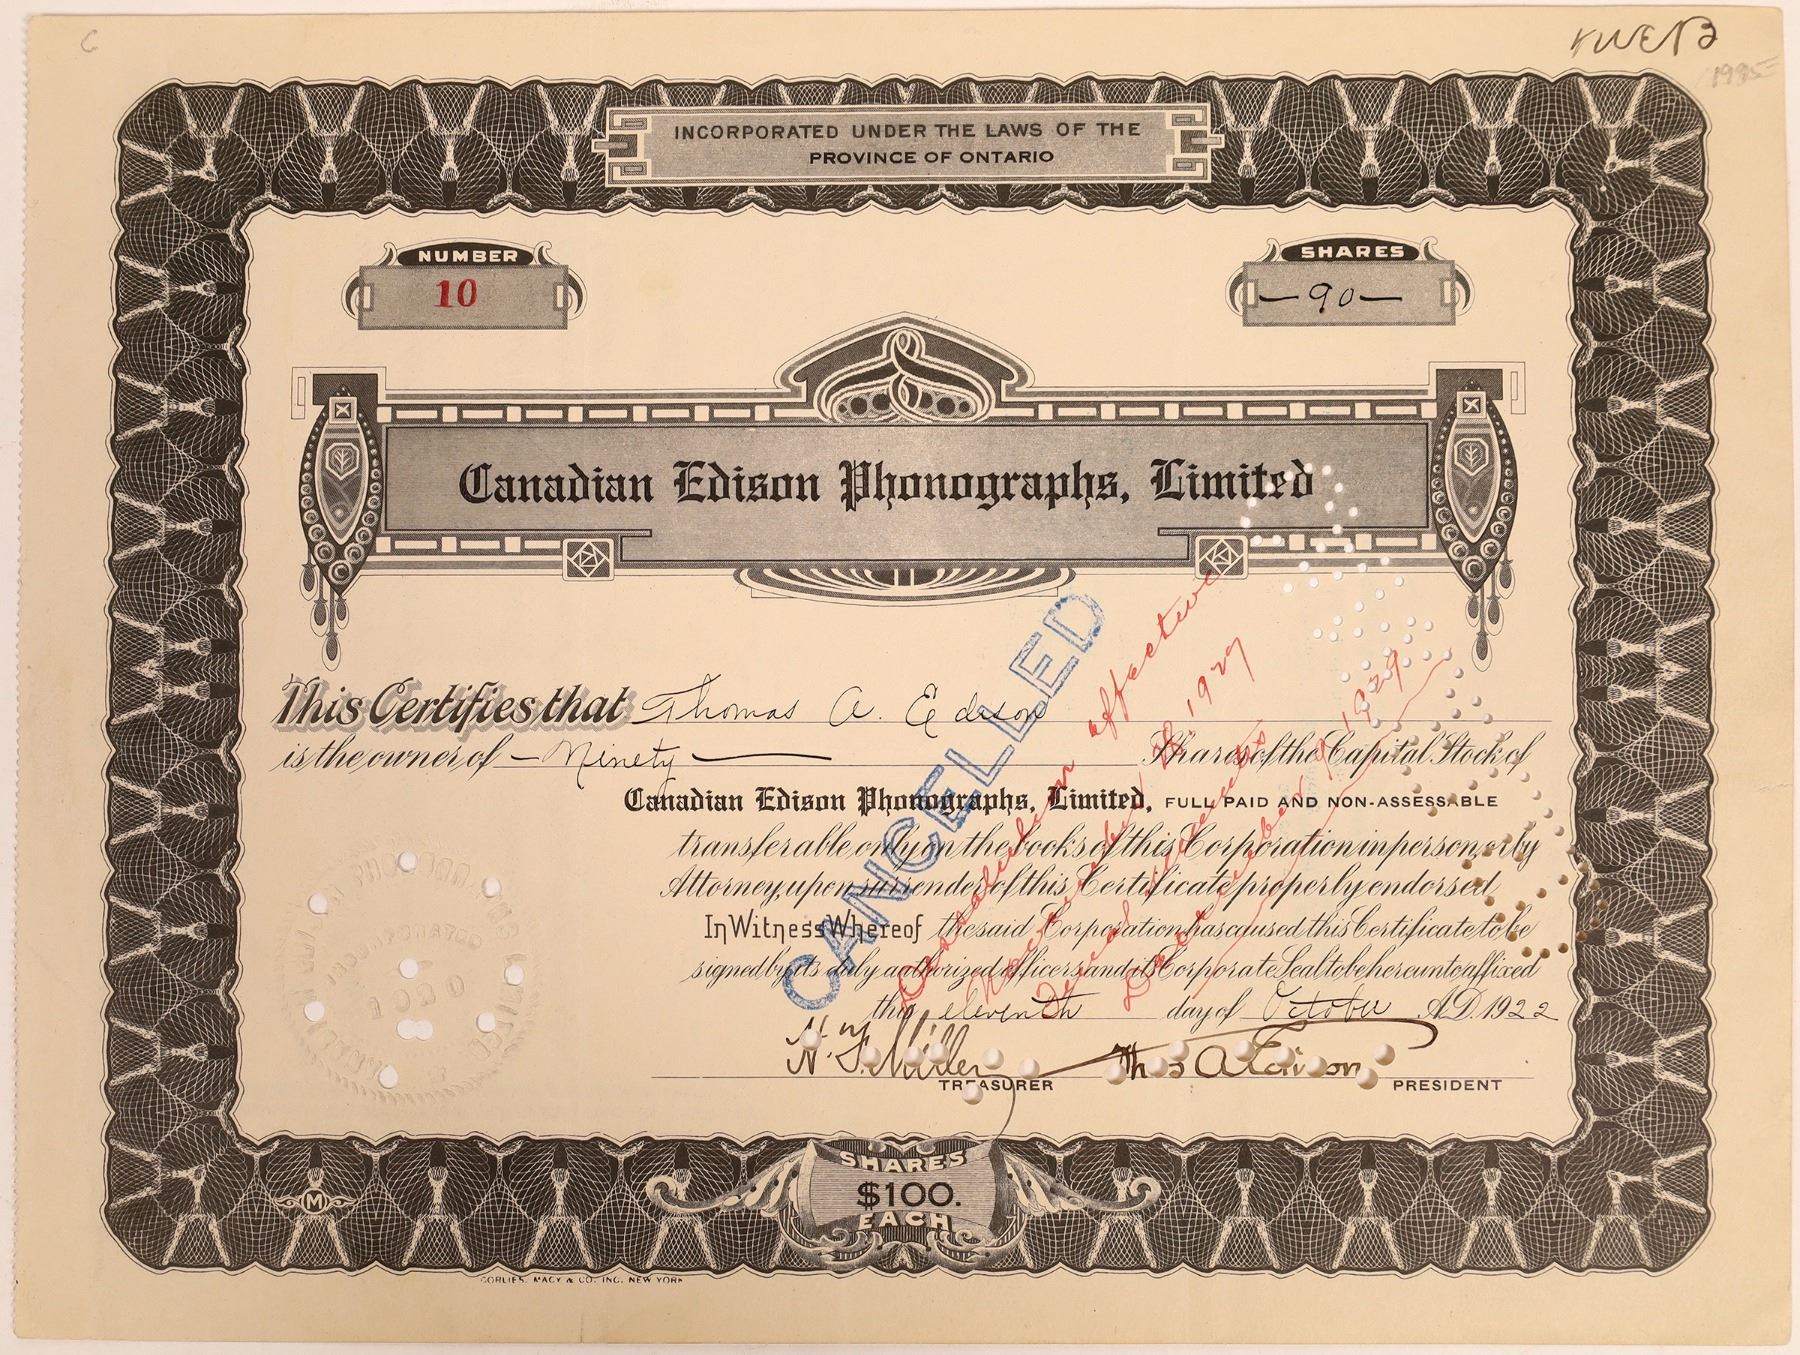 INCORPORATED UNDER THE LAWS OF THE
PROVINCE OF ONTARIO
NUMBER
10
SHARES
—90—
Canadian Edison Phonographs, Limited
This Certifies that Thomas A. Edison
is the owner of — Ninety — Shares of the Capital Stock of
Canadian Edison Phonographs, Limited, FULL PAID AND NON-ASSESSABLE
transferable only on the books of this Corporation in person or by
Attorney, upon surrender of this Certificate properly endorsed.
In Witness Whereof the said Corporation has caused this Certificate to be
signed by its duly authorized officers and its Corporate Seal to be hereunto affixed
this eleventh day of October A.D. 1922
H. F. Miller
TREASURER
Thos A Edison
PRESIDENT
CANCELLED
effective
1929
December 9 1929
INCORPORATED
1920
SHARES
$100.
EACH
M
CORLIES, MACY & CO. INC. NEW YORK